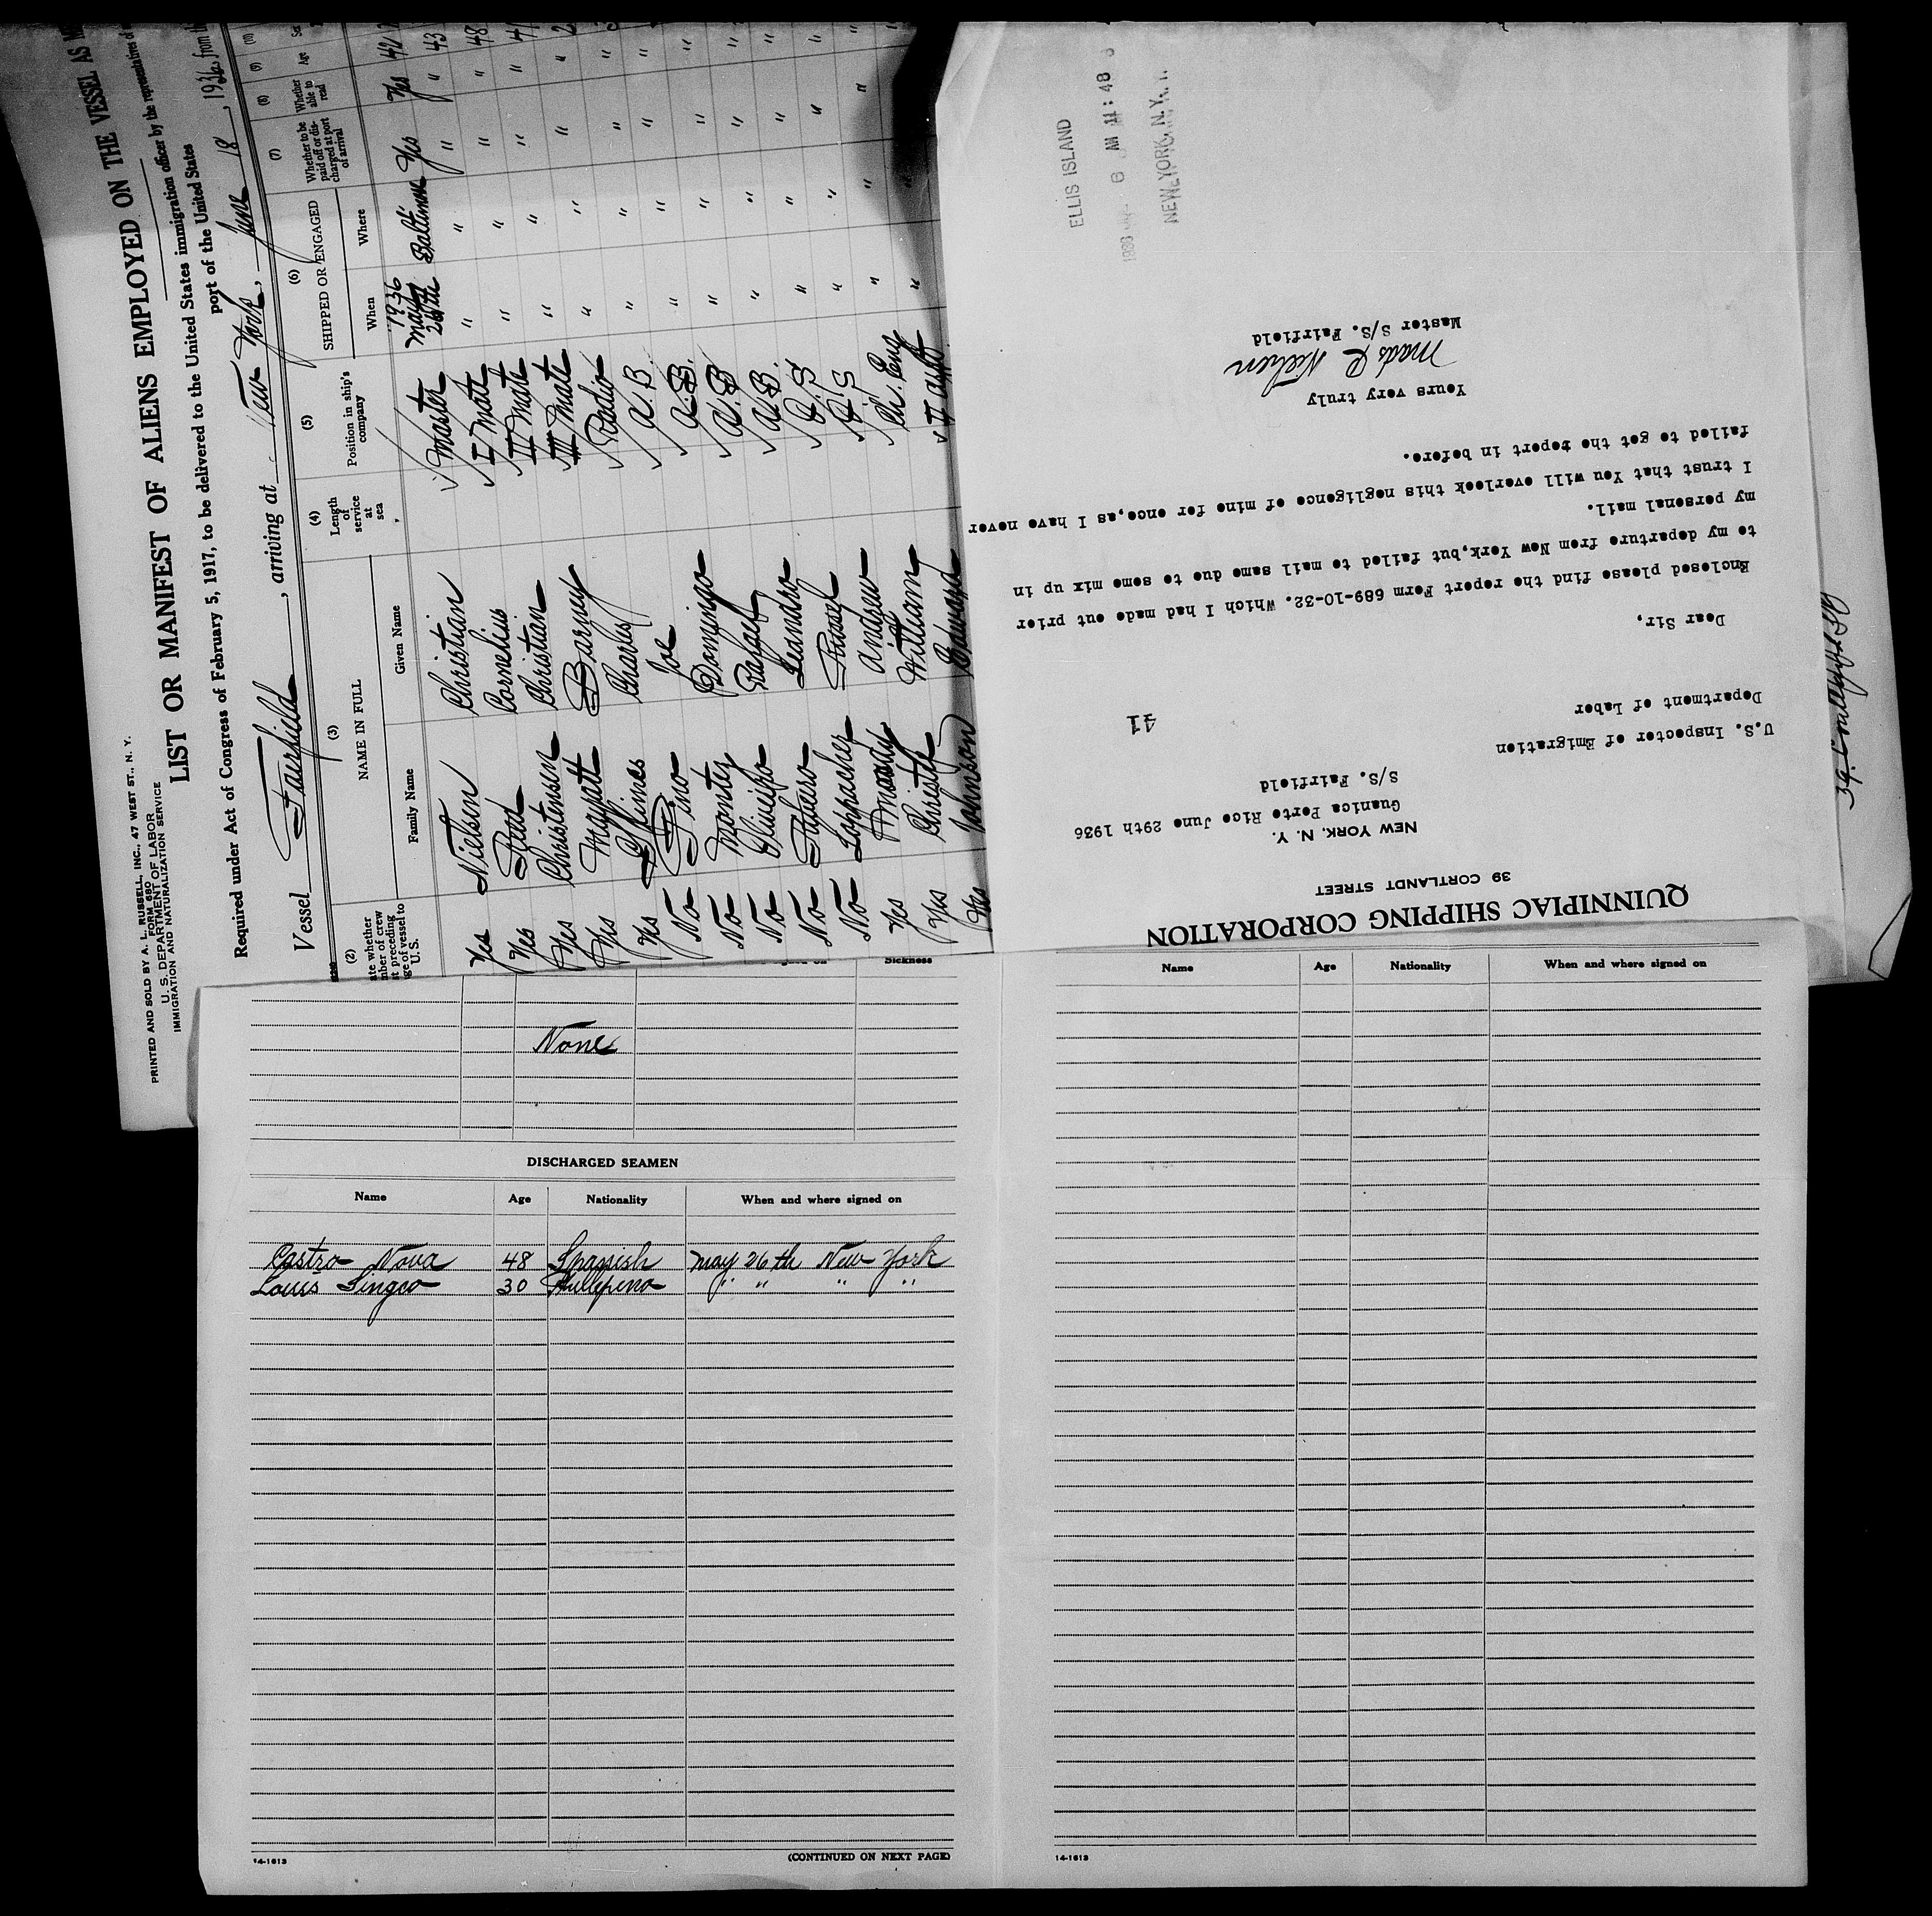 PRINTED AND SOLD BY A. L. RUSSELL, INC., 47 WEST ST., N. Y.
FORM 680
U. S. DEPARTMENT OF LABOR
IMMIGRATION AND NATURALIZATION SERVICE
LIST OR MANIFEST OF ALIENS EMPLOYED ON THE VESSEL AS
Required under Act of Congress of February 5, 1917, to be delivered to the United States immigration officer by the representatives of
port of the United States
Vessel Fairfield, arriving at New York, June 18, 1936, from
(2) (3) (4) (5) (6) (7) (8) (9) (10)
NAME IN FULL
Family Name Given Name
Length of service at sea
Position in ship's company
SHIPPED OR ENGAGED
When Where
Whether to be paid off or discharged at port of arrival
Whether able to read
Age
Yes Nielsen Christian Master 1936 May 26th Baltimore Yes Yes 42
Yes Reed Cornelius I Mate " " " " 43
Yes Christensen Christian II Mate " " " " 48
Yes Mayatt Barney III Mate " " " "
Yes Charles Radio " " " "
No Pino Joe A. B. " " " "
No Montez Domingo A. B. " " " "
No Rafael A. B. " " " "
No Leandro A. B. " " " "
No Russel O. S " " " "
Yes Moody Andrew O. S " " " "
Yes Christie William Ch. Eng " " " "
Yes Johnson Edward
QUINNIPIAC SHIPPING CORPORATION
39 CORTLANDT STREET
NEW YORK, N. Y.
Guanica Porto Rico June 29th 1936
S/S. Fairfield
U.S. Inspector of Emigration
Department of Labor
Dear Sir,
Enclosed please find the report Form 689-10-32. Which I had made out prior
to my departure from New York,but failed to mail same due to some mix up in
my personal mail.
I trust that You will overlook this negligence of mine for once,as I have never
failed to get the report in before.
Yours very truly
Mads R Nielsen
Master S/S. Fairfield
ELLIS ISLAND
6 AM 11:48
NEW YORK, N.Y.
Sickness
None
DISCHARGED SEAMEN
Name Age Nationality When and where signed on
Castro Nova 48 Spanish May 26th New York
Louis Singco 30 Phillipeno " " " "
14-1613 (CONTINUED ON NEXT PAGE)
Name Age Nationality When and where signed on
14-1613